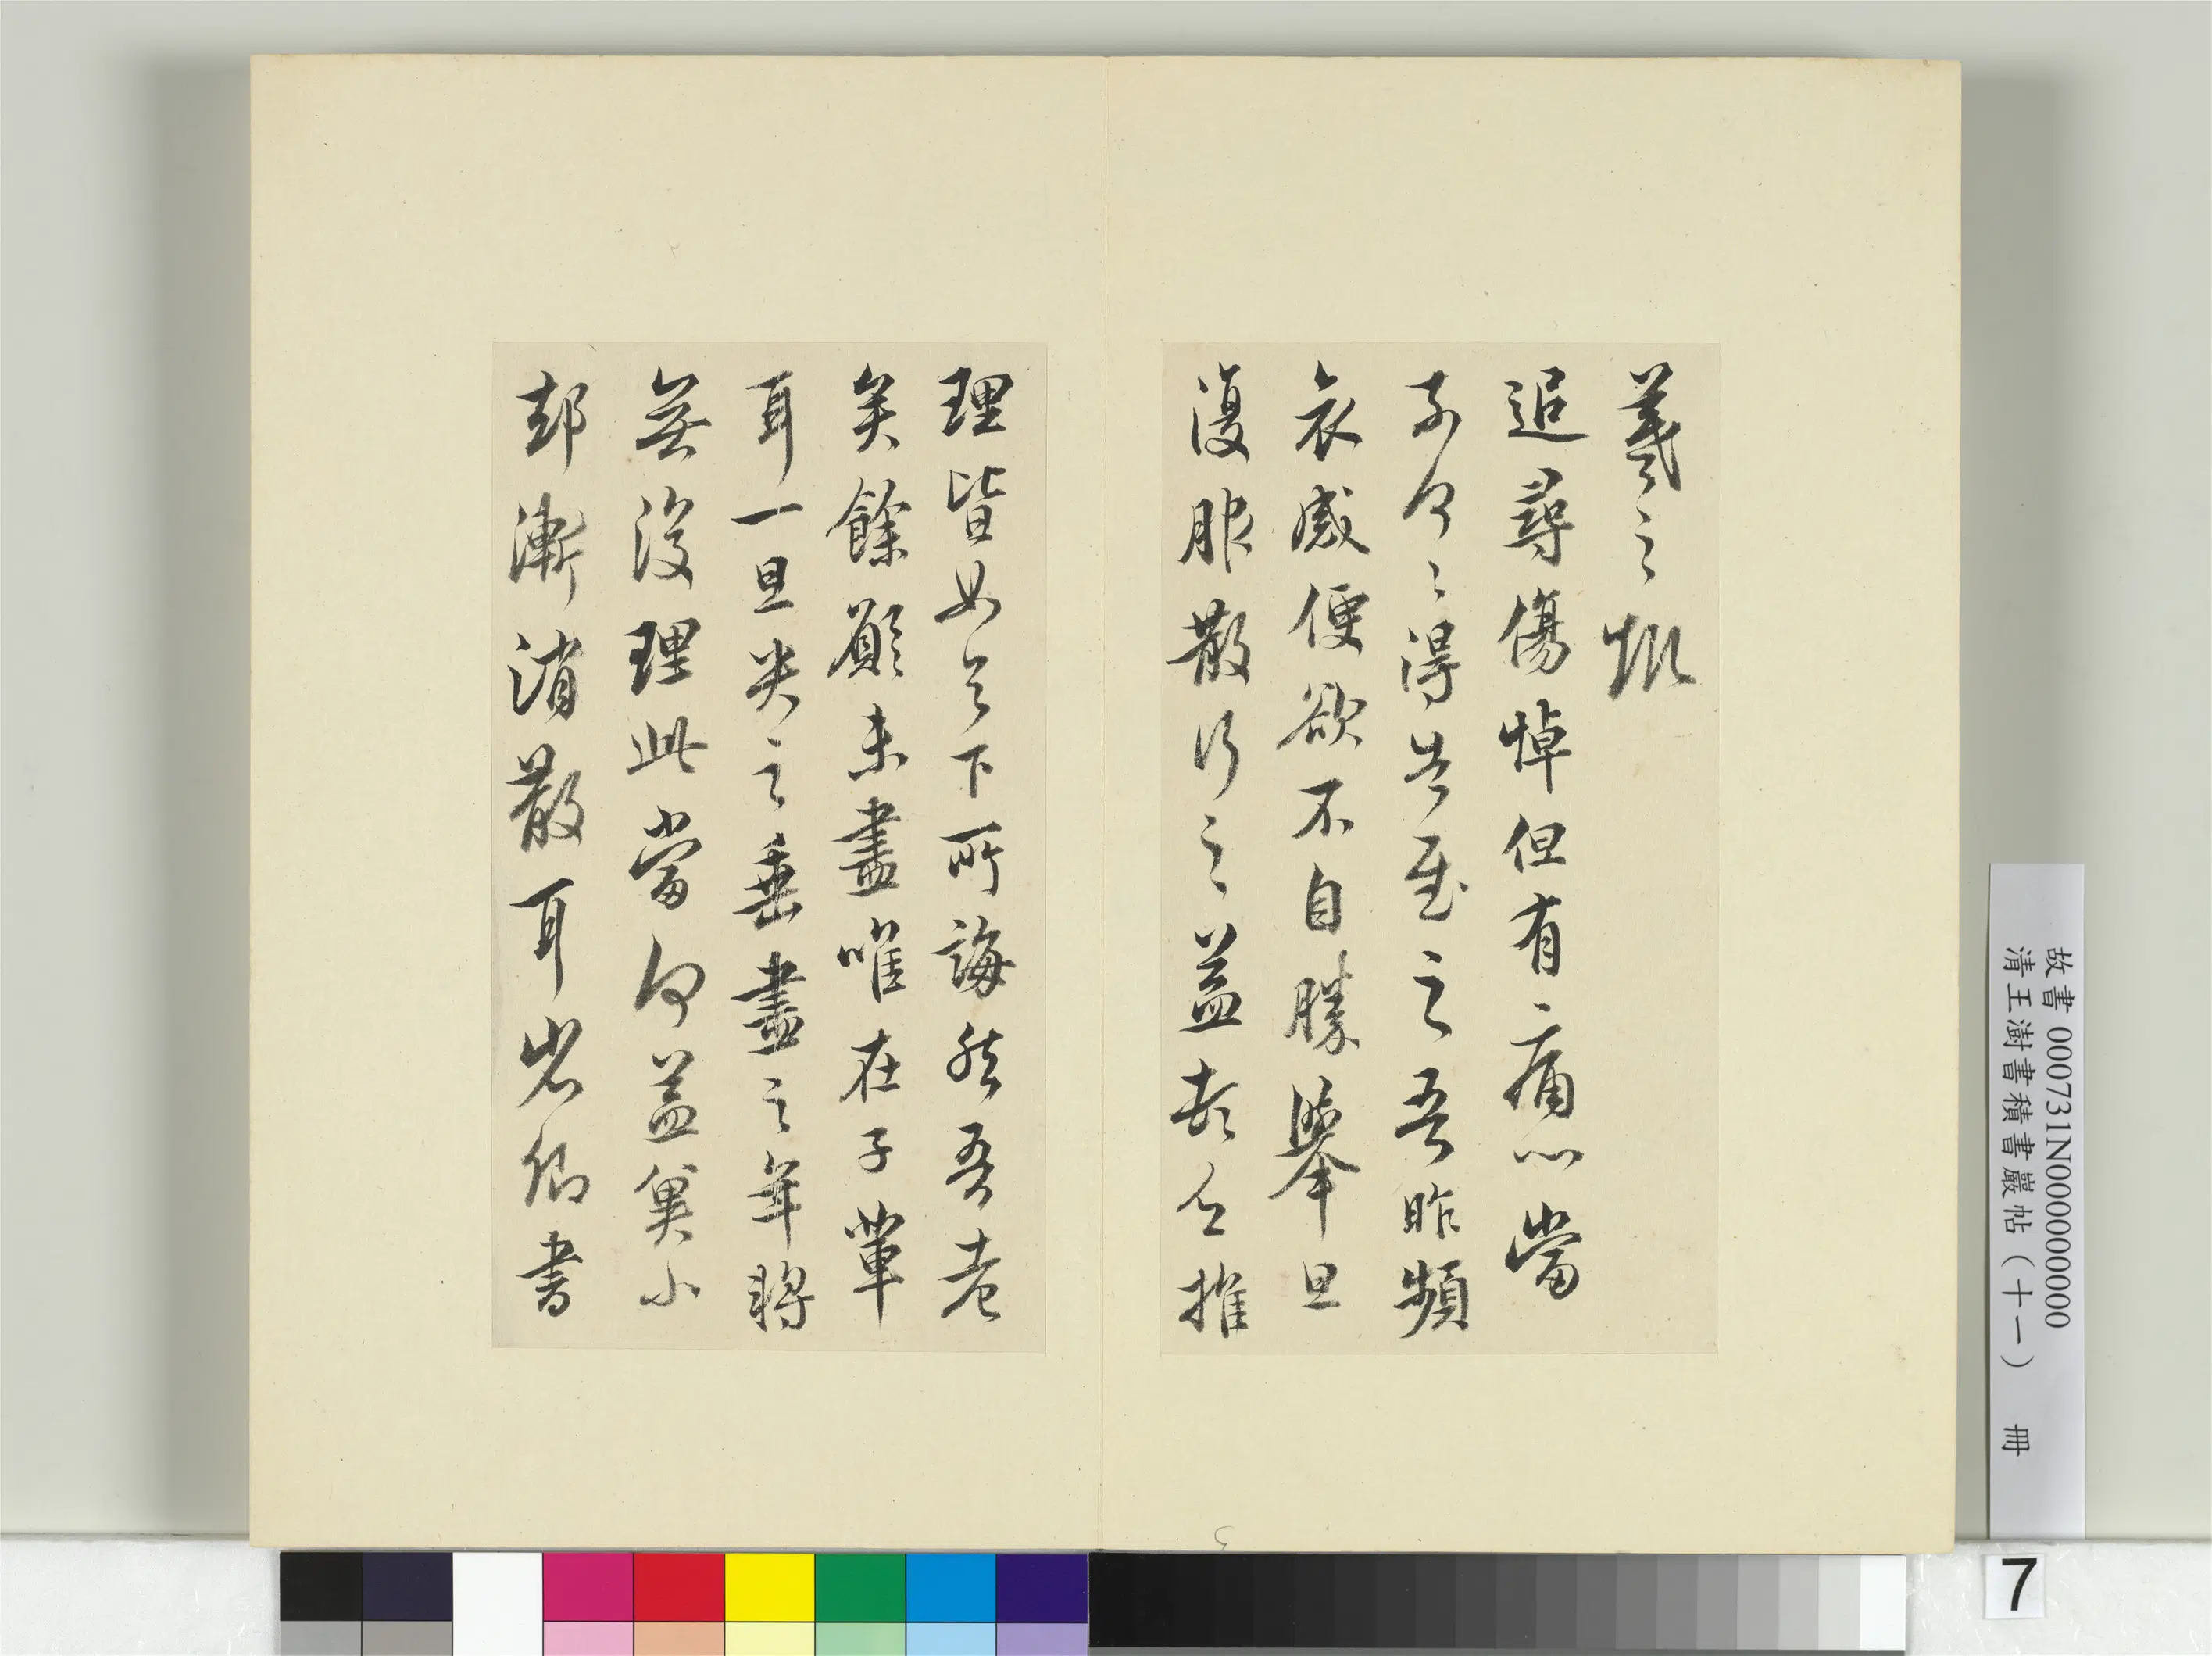 羲之
追尋傷悼但有痛心當
奈何々得告慰之吾昨頻
哀感便欲不自勝舉旦
復服散行之益頓乏推
理皆如足下所誨然吾老
矣餘願未盡唯在子輩
耳一旦哭之垂盡之年將
無復理此當何益冀小
却漸消散耳省卿書
故書 000731N000000000
清王澍書積書巖帖（十一） 冊
7